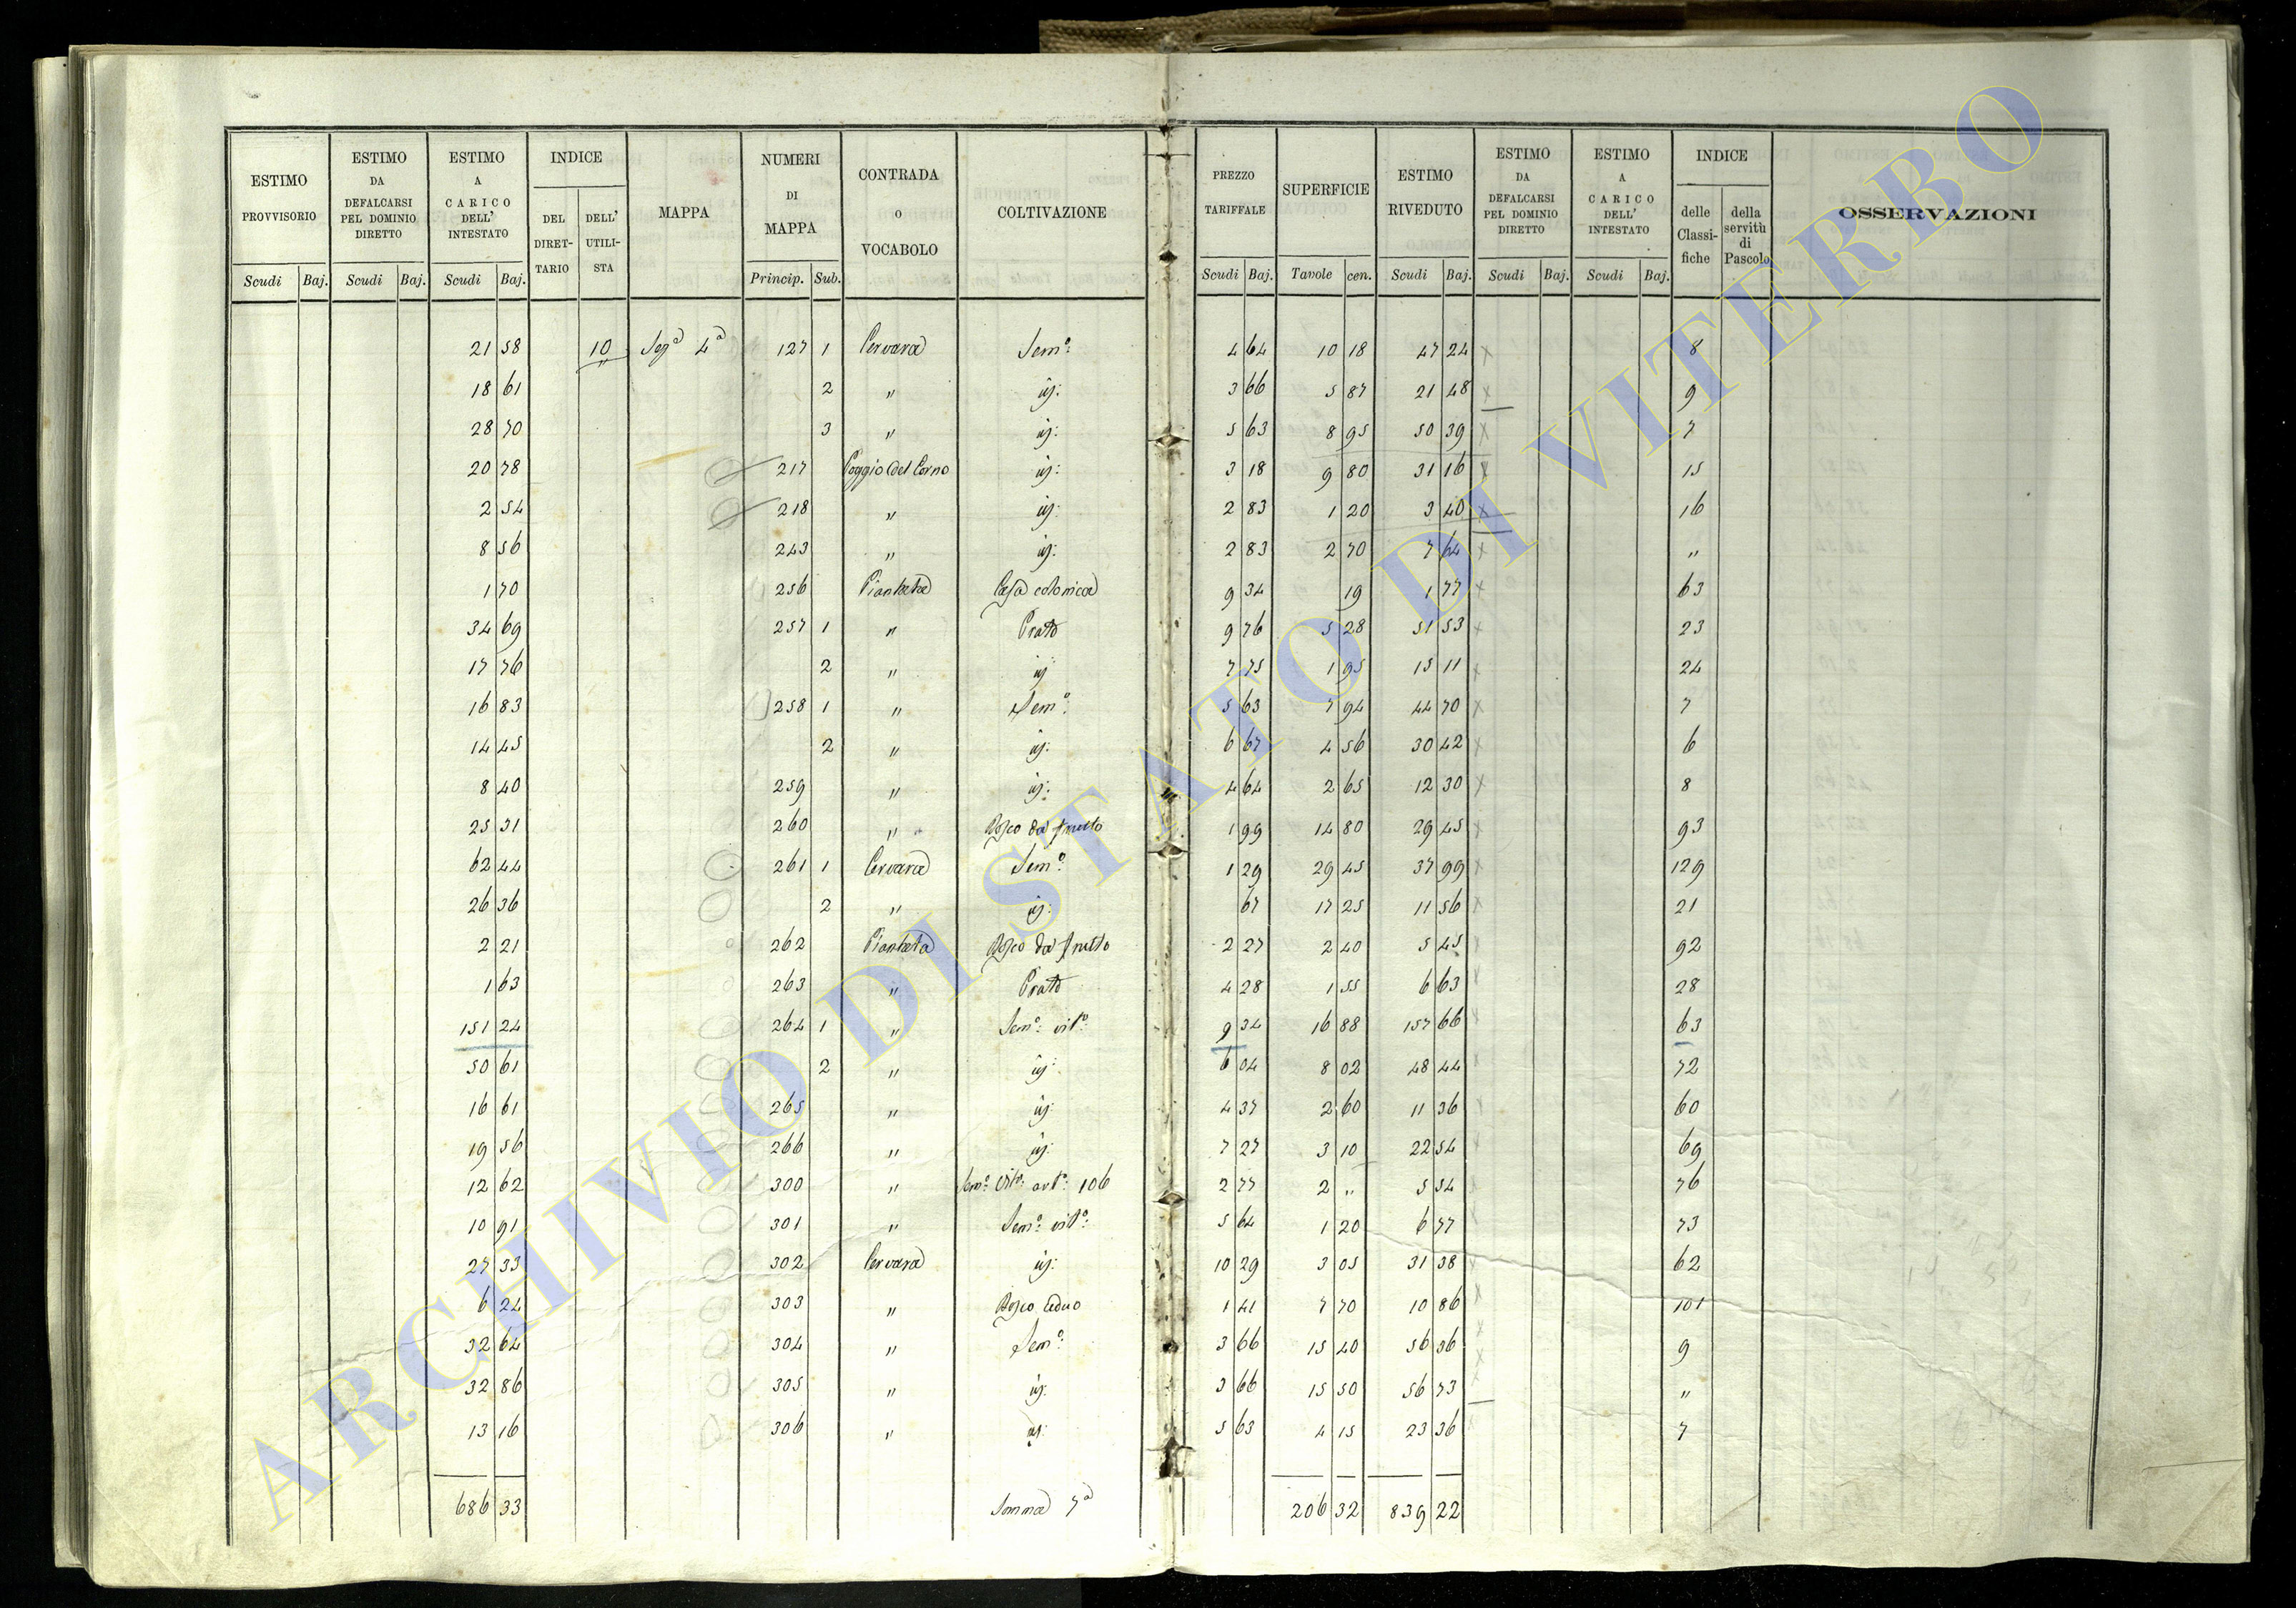 ESTIMO PROVVISORIO Scudi Baj.
ESTIMO DA DEFALCARSI PEL DOMINIO DIRETTO Scudi Baj.
ESTIMO A CARICO DELL' INTESTATO Scudi Baj.
INDICE DEL DIRET-TARIO DELL' UTILI-STA
MAPPA
NUMERI DI MAPPA Princip. Sub.
CONTRADA O VOCABOLO
COLTIVAZIONE
PREZZO TARIFFALE Scudi Baj.
SUPERFICIE Tavole cen.
ESTIMO RIVEDUTO Scudi Baj.
ESTIMO DA DEFALCARSI PEL DOMINIO DIRETTO Scudi Baj.
ESTIMO A CARICO DELL' INTESTATO Scudi Baj.
INDICE delle Classi-fiche della servitù di Pascolo
OSSERVAZIONI
21 58 10 Sez.a 4a 127 1 Cervara Sem.o 4 64 10 18 47 24 8
18 61 2 " id: 3 66 5 87 21 48 9
28 70 3 " id: 5 63 8 95 50 39 7
20 78 217 Poggio del Corno id: 3 18 9 80 31 16 15
2 54 218 " id: 2 83 1 20 3 40 16
8 56 243 " id: 2 83 2 70 7 64 "
1 70 256 Piantata Casa colonica 9 34 19 1 77 63
34 69 257 1 " Prato 9 76 5 28 51 53 23
17 76 2 " id 7 75 1 95 15 11 24
16 83 258 1 " Sem.o 5 63 7 94 44 70 7
14 45 2 " id: 6 67 4 56 30 42 6
8 40 259 " id: 4 64 2 65 12 30 8
25 31 260 " Bosco da frutto 1 99 14 80 29 45 93
62 44 261 1 Cervara Sem.o 1 29 29 45 37 99 129
26 36 2 " id: 67 17 25 11 56 21
2 21 262 Piantata Bosco da frutto 2 27 2 40 5 45 92
1 63 263 " Prato 4 28 1 55 6 63 28
151 24 264 1 " Sem.o vit.o 9 34 16 88 157 66 63
50 61 2 " id: 6 04 8 02 48 44 72
16 61 265 " id: 4 37 2 60 11 36 60
19 56 266 " id: 7 27 3 10 22 54 69
12 62 300 " Sem.o vit.o art.o 106 2 77 2 " 5 54 76
10 91 301 " Sem.o vit.o 5 64 1 20 6 77 73
27 33 302 Cervara id: 10 29 3 05 31 38 62
6 24 303 " Bosco ceduo 1 41 7 70 10 86 101
32 64 304 " Sem.o 3 66 15 40 56 36 9
32 86 305 " id: 3 66 15 50 56 73 "
13 16 306 " id: 5 63 4 15 23 36 7
686 33 Somma 7a 206 32 839 22
ARCHIVIO DI STATO DI VITERBO